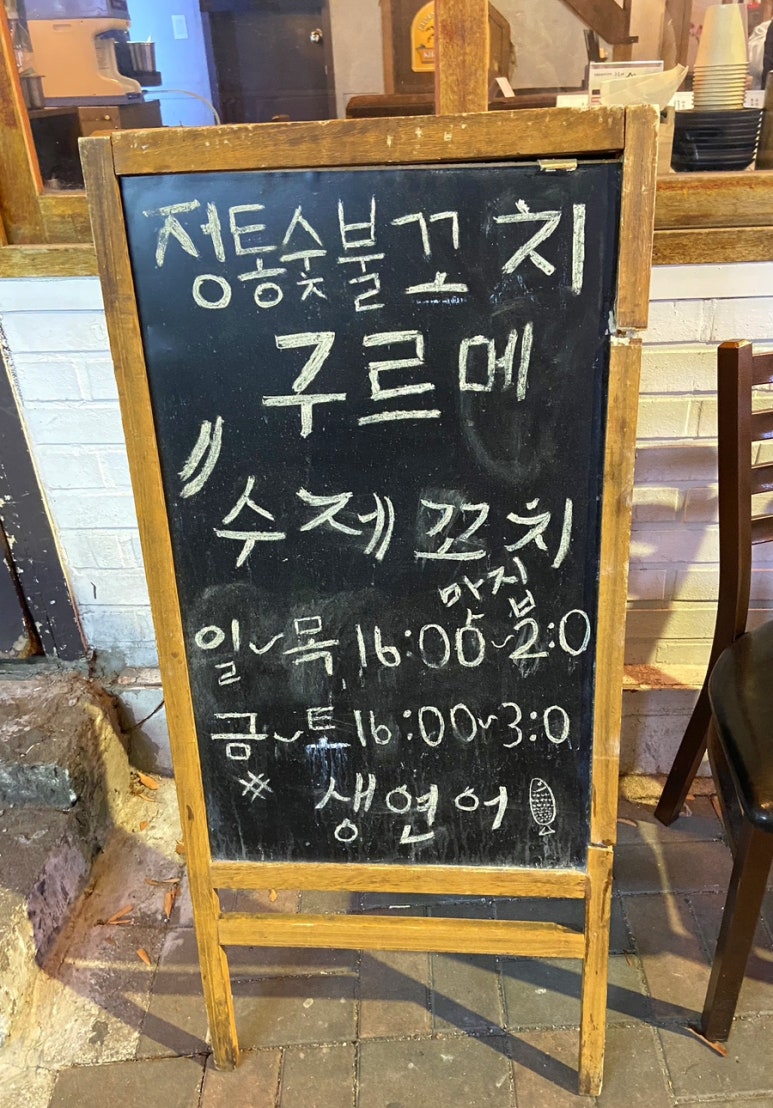 정통숯불꼬치
구르메
"수제꼬치
맛집
일~목 16:00~2:0
금~토 16:00~3:0
# 생연어